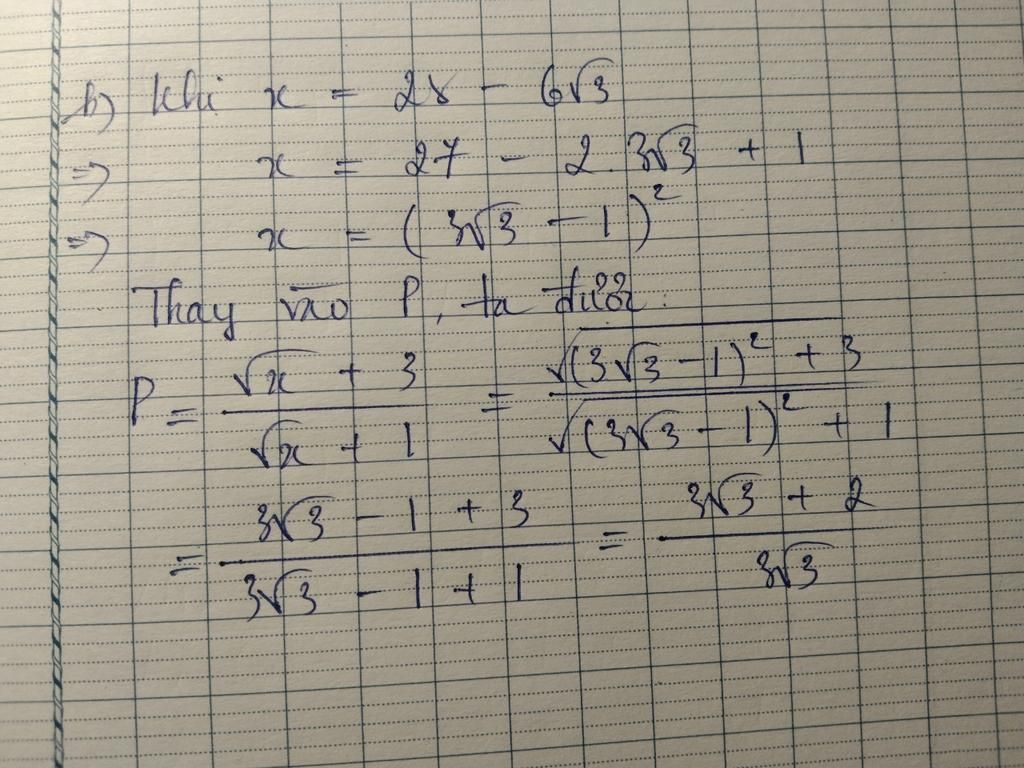 b) Khi x = 28 - 6√3
=> x = 27 - 2.3√3 + 1
=> x = (3√3 - 1)²
Thay vào P, ta được:
P = (√x + 3)/(√x + 1) = (√(3√3 - 1)² + 3)/(√(3√3 - 1)² + 1)
= (3√3 - 1 + 3)/(3√3 - 1 + 1) = (3√3 + 2)/(3√3)